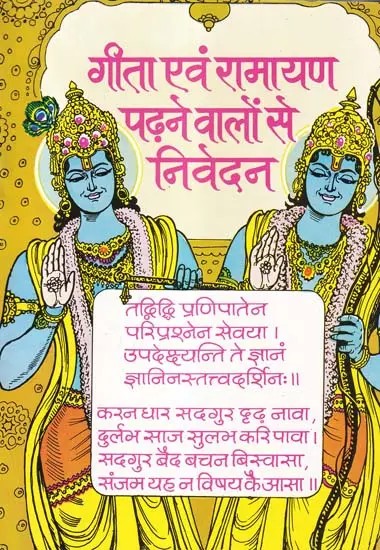 गीता एवं रामायण
पढ़ने वालों से
निवेदन
तद्विद्वि प्रणिपातेन
परिप्रश्नेन सेवया ।
उपदेक्ष्यन्ति ते ज्ञानं
ज्ञानिनस्तत्त्वदर्शिनः ॥
करन धार सदगुर दृढ़ नावा,
दुर्लभ साज सुलभ करि पावा ।
सदगुर बैद बचन बिस्वासा,
संजम यह न विषय कै आसा ॥